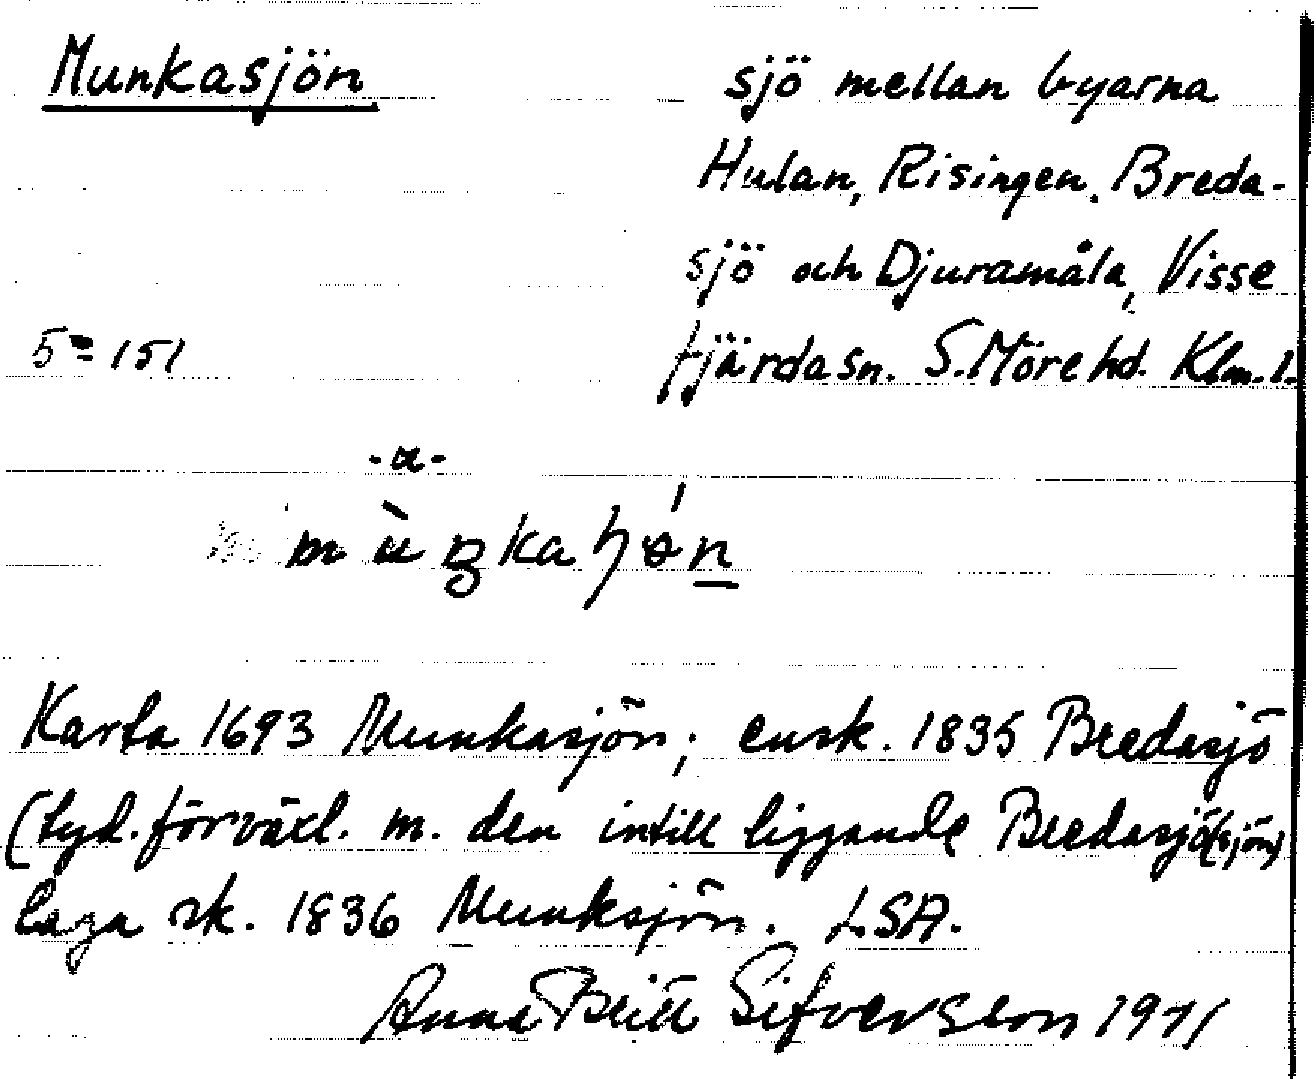 Munkasjön
sjö mellan byarna
Hulan, Risingen, Breda-
sjö och Djuramåla, Visse
fjärda sn. S. Möre hd. Klm. l.
5 = 151
-a-
Karta 1693 Munkasjön; ensk. 1835 Bredasjö
(tyd. förväxl. m. den intill liggande Bredasjö(sjön)
laga sk. 1836 Munksjön. LSA.
Anna Britt Sifversson 1971